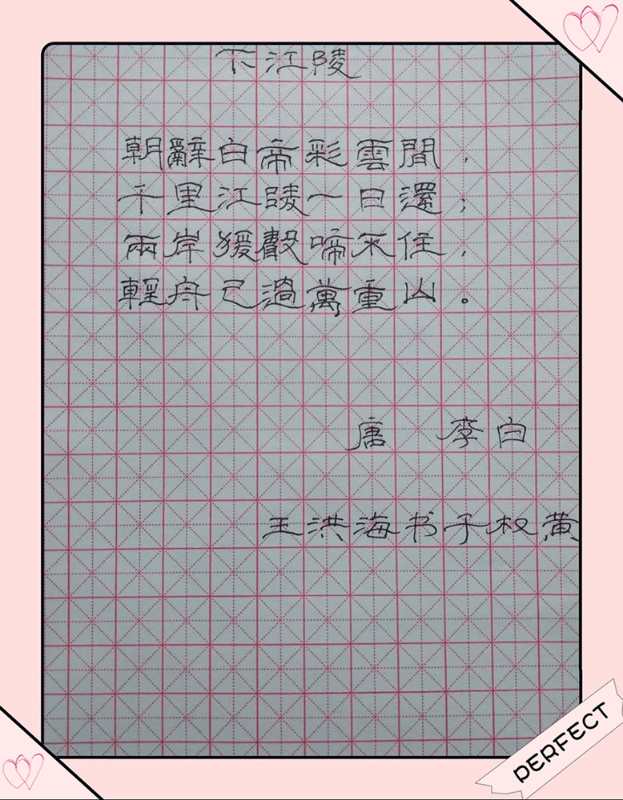 下江陵
朝辭白帝彩雲間，
千里江陵一日還；
兩岸猨聲啼不住，
輕舟已過萬重山。
唐 李白
王洪海书于权黄
PERFECT